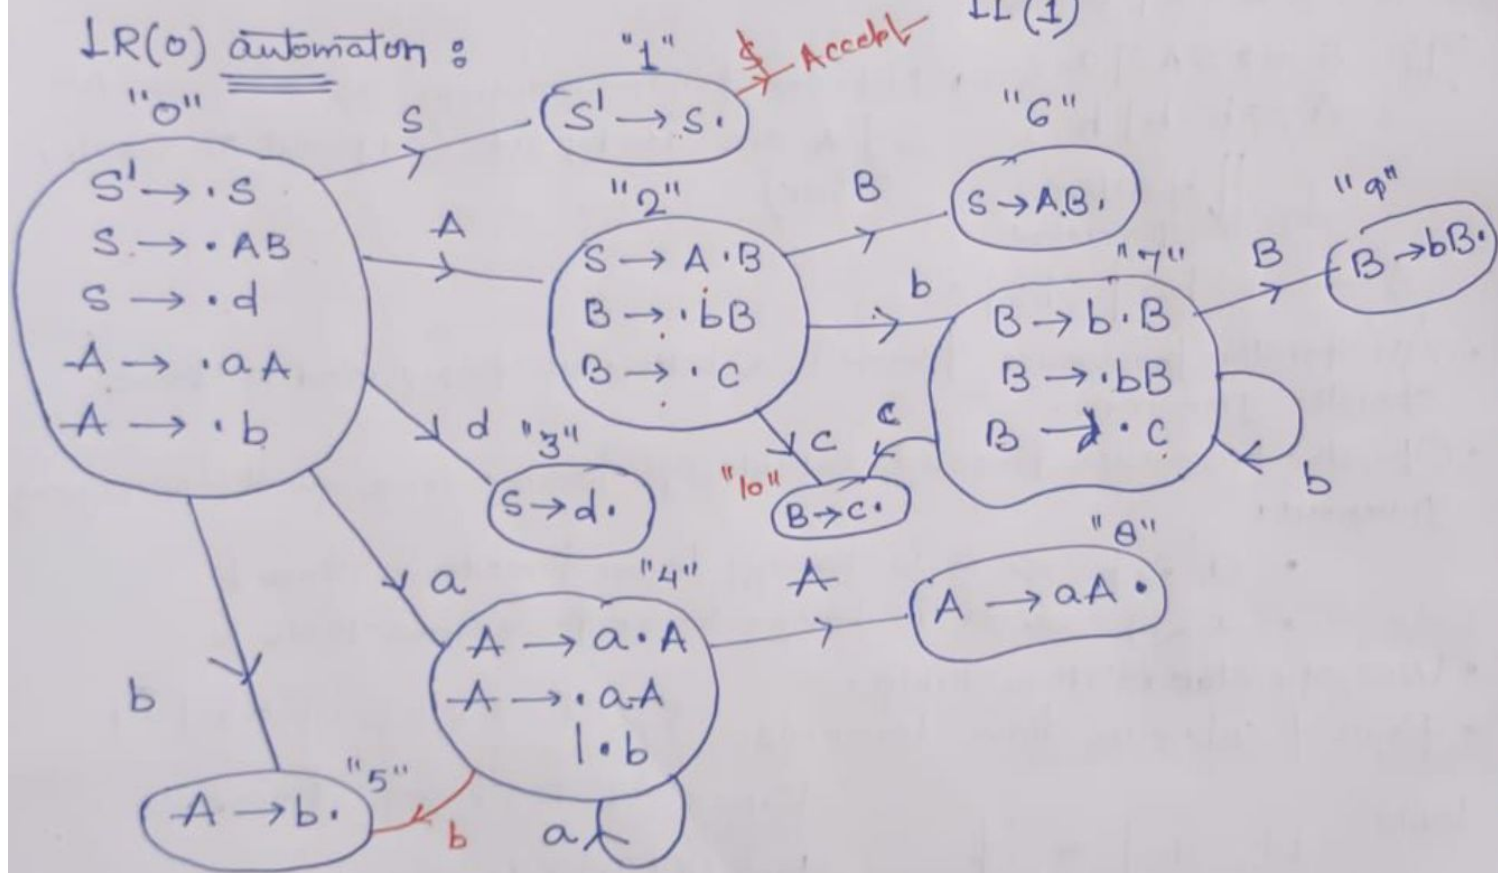 LR(0) automaton :
LL(1)
"0"
S' → · S
S → · AB
S → · d
A → · aA
A → · b
S
"1"
S' → S·
$
Accept
A
"2"
S → A · B
B → · bB
B → · c
B
"6"
S → A.B.
b
"7"
B → b · B
B → · bB
B → · c
b
B
"9"
B → bB·
c
c
"10"
B → c·
d
"3"
S → d·
a
"4"
A → a · A
A → · aA
| · b
a
A
"8"
A → aA ·
b
b
"5"
A → b·